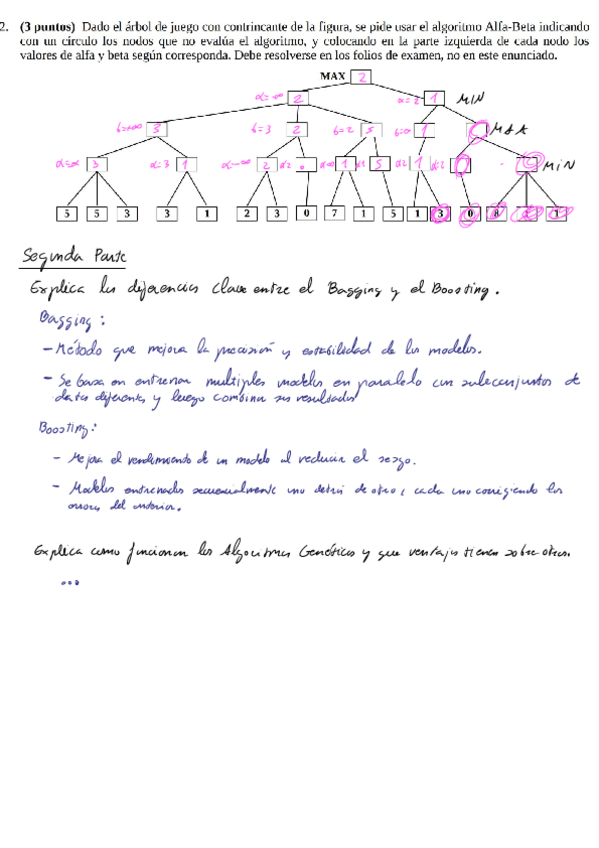 2. (3 puntos) Dado el árbol de juego con contrincante de la figura, se pide usar el algoritmo Alfa-Beta indicando
con un círculo los nodos que no evalúa el algoritmo, y colocando en la parte izquierda de cada nodo los
valores de alfa y beta según corresponda. Debe resolverse en los folios de examen, no en este enunciado.
MAX 2
α=-∞ 2 α=2 1 MIN
b=+∞ 3 b=3 2 b=2 5 1 MAX
3 α=3 1 2 1 5 1 MIN
5 5 3 3 1 2 3 0 7 1 5 1 3 0 8 1
Segunda Parte
Explica las diferencias clave entre el Bagging y el Boosting.
Bagging:
- Método que mejora la precisión y estabilidad de los modelos.
- Se basa en entrenar multiples modelos en paralelo con subconjuntos de
datos diferentes, y luego combinar sus resultados
Boosting:
- Mejora el rendimiento de un modelo al reducir el sesgo.
- Modelos entrenados secuencialmente uno detrás de otro, cada uno corrigiendo los
errores del anterior.
Explica como funcionan los Algoritmos Genéticos y que ventajas tienen sobre otros.
...